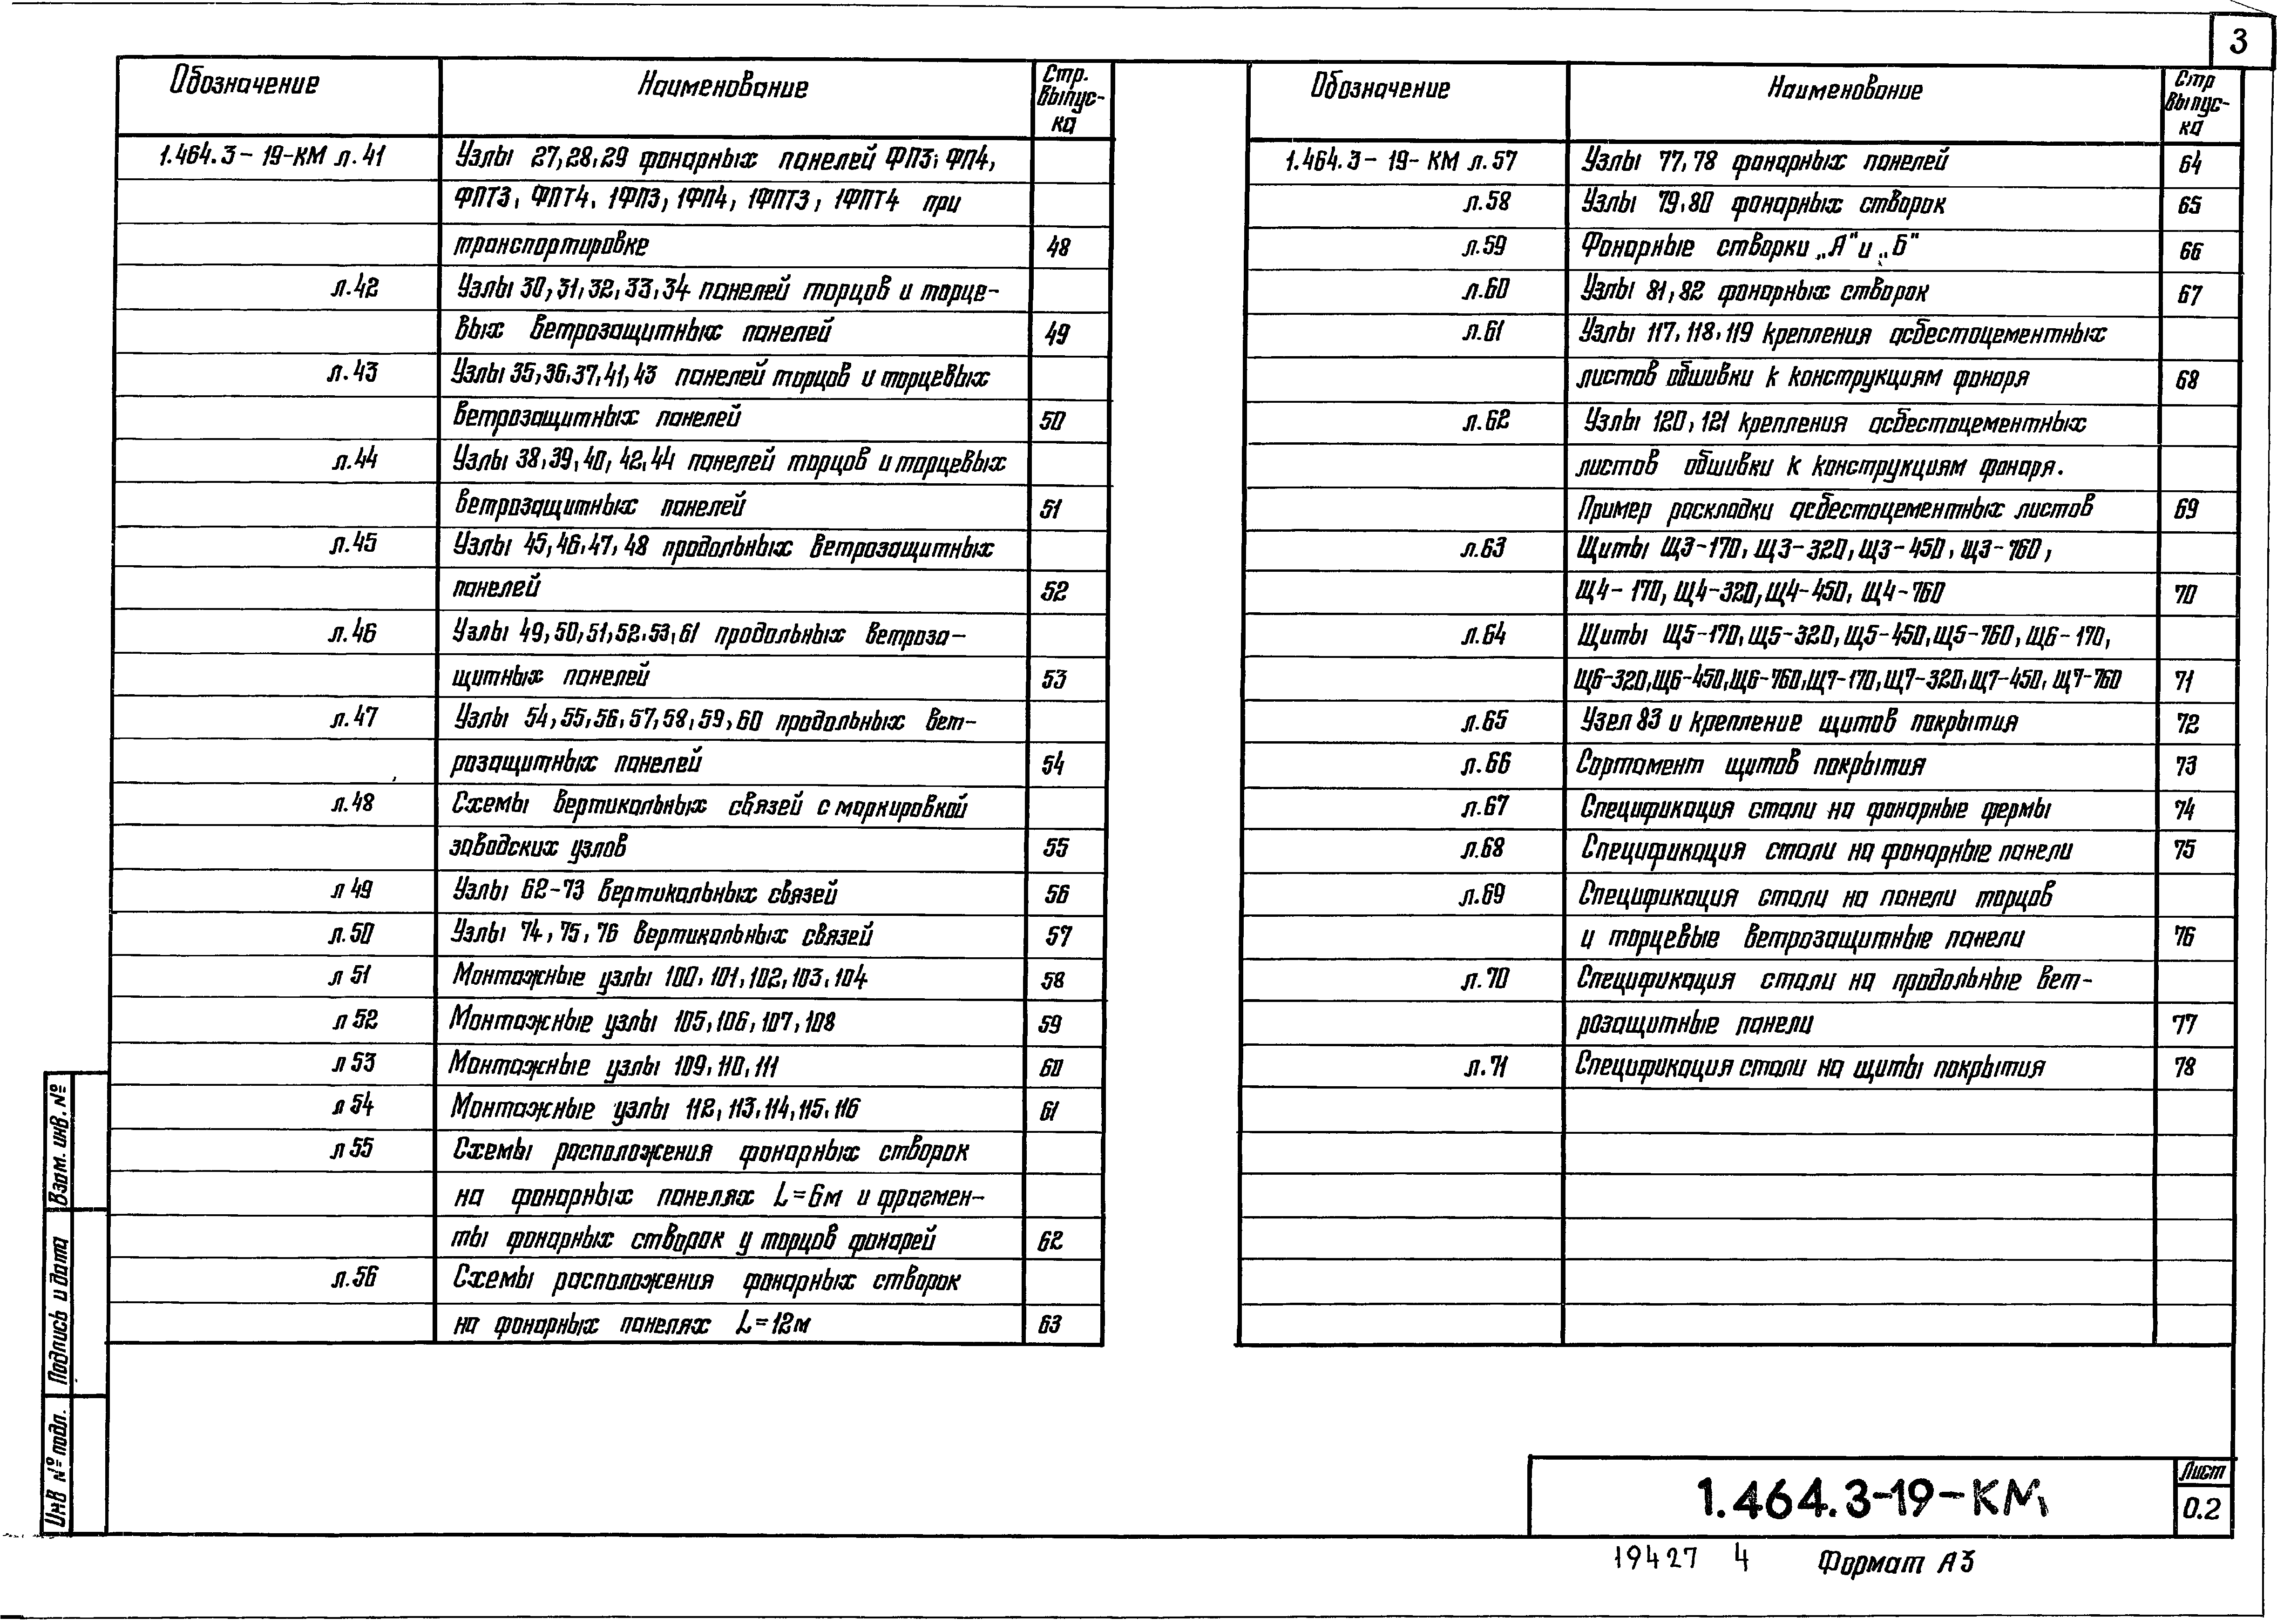 3
Обозначение Наименование Стр. выпус-ка
1.464.3-19-КМ л.41 Узлы 27,28,29 фонарных панелей ФП3, ФП4,
ФПТ3, ФПТ4, 1ФП3, 1ФП4, 1ФПТ3, 1ФПТ4 при
транспортировке 48
л.42 Узлы 30,31,32,33,34 панелей торцов и торце-
вых ветрозащитных панелей 49
л.43 Узлы 35,36,37,41,43 панелей торцов и торцевых
ветрозащитных панелей 50
л.44 Узлы 38,39,40,42,44 панелей торцов и торцевых
ветрозащитных панелей 51
л.45 Узлы 45,46,47,48 продольных ветрозащитных
панелей 52
л.46 Узлы 49,50,51,52,53,61 продольных ветроза-
щитных панелей 53
л.47 Узлы 54,55,56,57,58,59,60 продольных вет-
розащитных панелей 54
л.48 Схемы вертикальных связей с маркировкой
заводских узлов 55
л 49 Узлы 62-73 вертикальных связей 56
л.50 Узлы 74,75,76 вертикальных связей 57
л 51 Монтажные узлы 100,101,102,103,104 58
л 52 Монтажные узлы 105,106,107,108 59
л 53 Монтажные узлы 109,110,111 60
л 54 Монтажные узлы 112,113,114,115,116 61
л 55 Схемы расположения фонарных створок
на фонарных панелях L=6м и фрагмен-
ты фонарных створок у торцов фонарей 62
л.56 Схемы расположения фонарных створок
на фонарных панелях L=12м 63
Обозначение Наименование Стр выпус-ка
1.464.3-19-КМ л.57 Узлы 77,78 фонарных панелей 64
л.58 Узлы 79,80 фонарных створок 65
л.59 Фонарные створки „А" и „Б" 66
л.60 Узлы 81,82 фонарных створок 67
л.61 Узлы 117,118,119 крепления асбестоцементных
листов обшивки к конструкциям фонаря 68
л.62 Узлы 120,121 крепления асбестоцементных
листов обшивки к конструкциям фонаря.
Пример раскладки асбестоцементных листов 69
л.63 Щиты Щ3-170, Щ3-320, Щ3-450, Щ3-760,
Щ4-170, Щ4-320, Щ4-450, Щ4-760 70
л.64 Щиты Щ5-170, Щ5-320, Щ5-450, Щ5-760, Щ6-170,
Щ6-320, Щ6-450, Щ6-760, Щ7-170, Щ7-320, Щ7-450, Щ7-760 71
л.65 Узел 83 и крепление щитов покрытия 72
л.66 Сортамент щитов покрытия 73
л.67 Спецификация стали на фонарные фермы 74
л.68 Спецификация стали на фонарные панели 75
л.69 Спецификация стали на панели торцов
и торцевые ветрозащитные панели 76
л.70 Спецификация стали на продольные вет-
розащитные панели 77
л.71 Спецификация стали на щиты покрытия 78
Взам. инв. №
Подпись и дата
Инв № подл.
1.464.3-19-КМ
Лист
0.2
19427 4 Формат А3